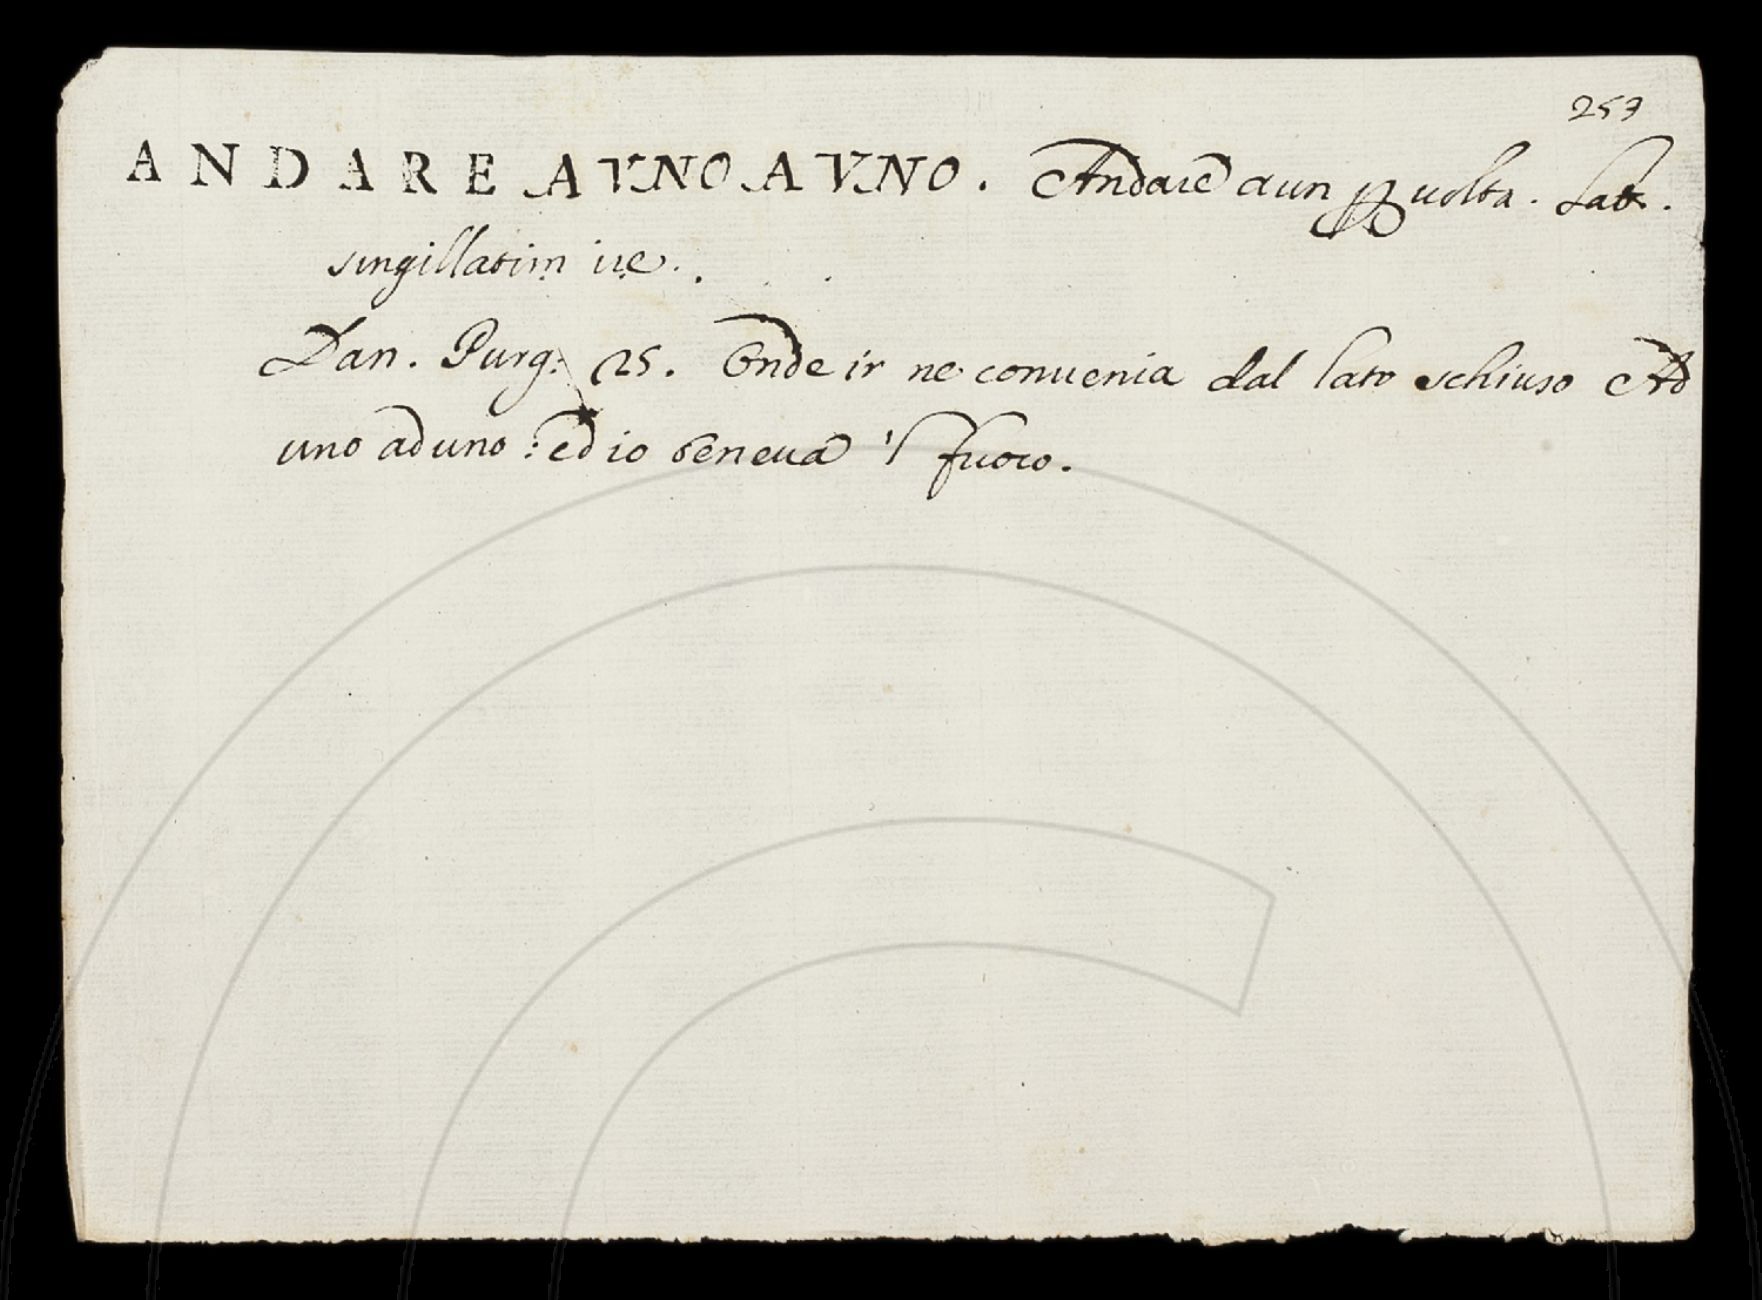 257
ANDARE A VNO A VNO. Andare a un p volta. Lat.
singillatim ire.
Dan. Purg. 25. Onde ir ne conuenia dal lato schiuso Ad
uno ad uno: ed io temeua 'l fuoco.